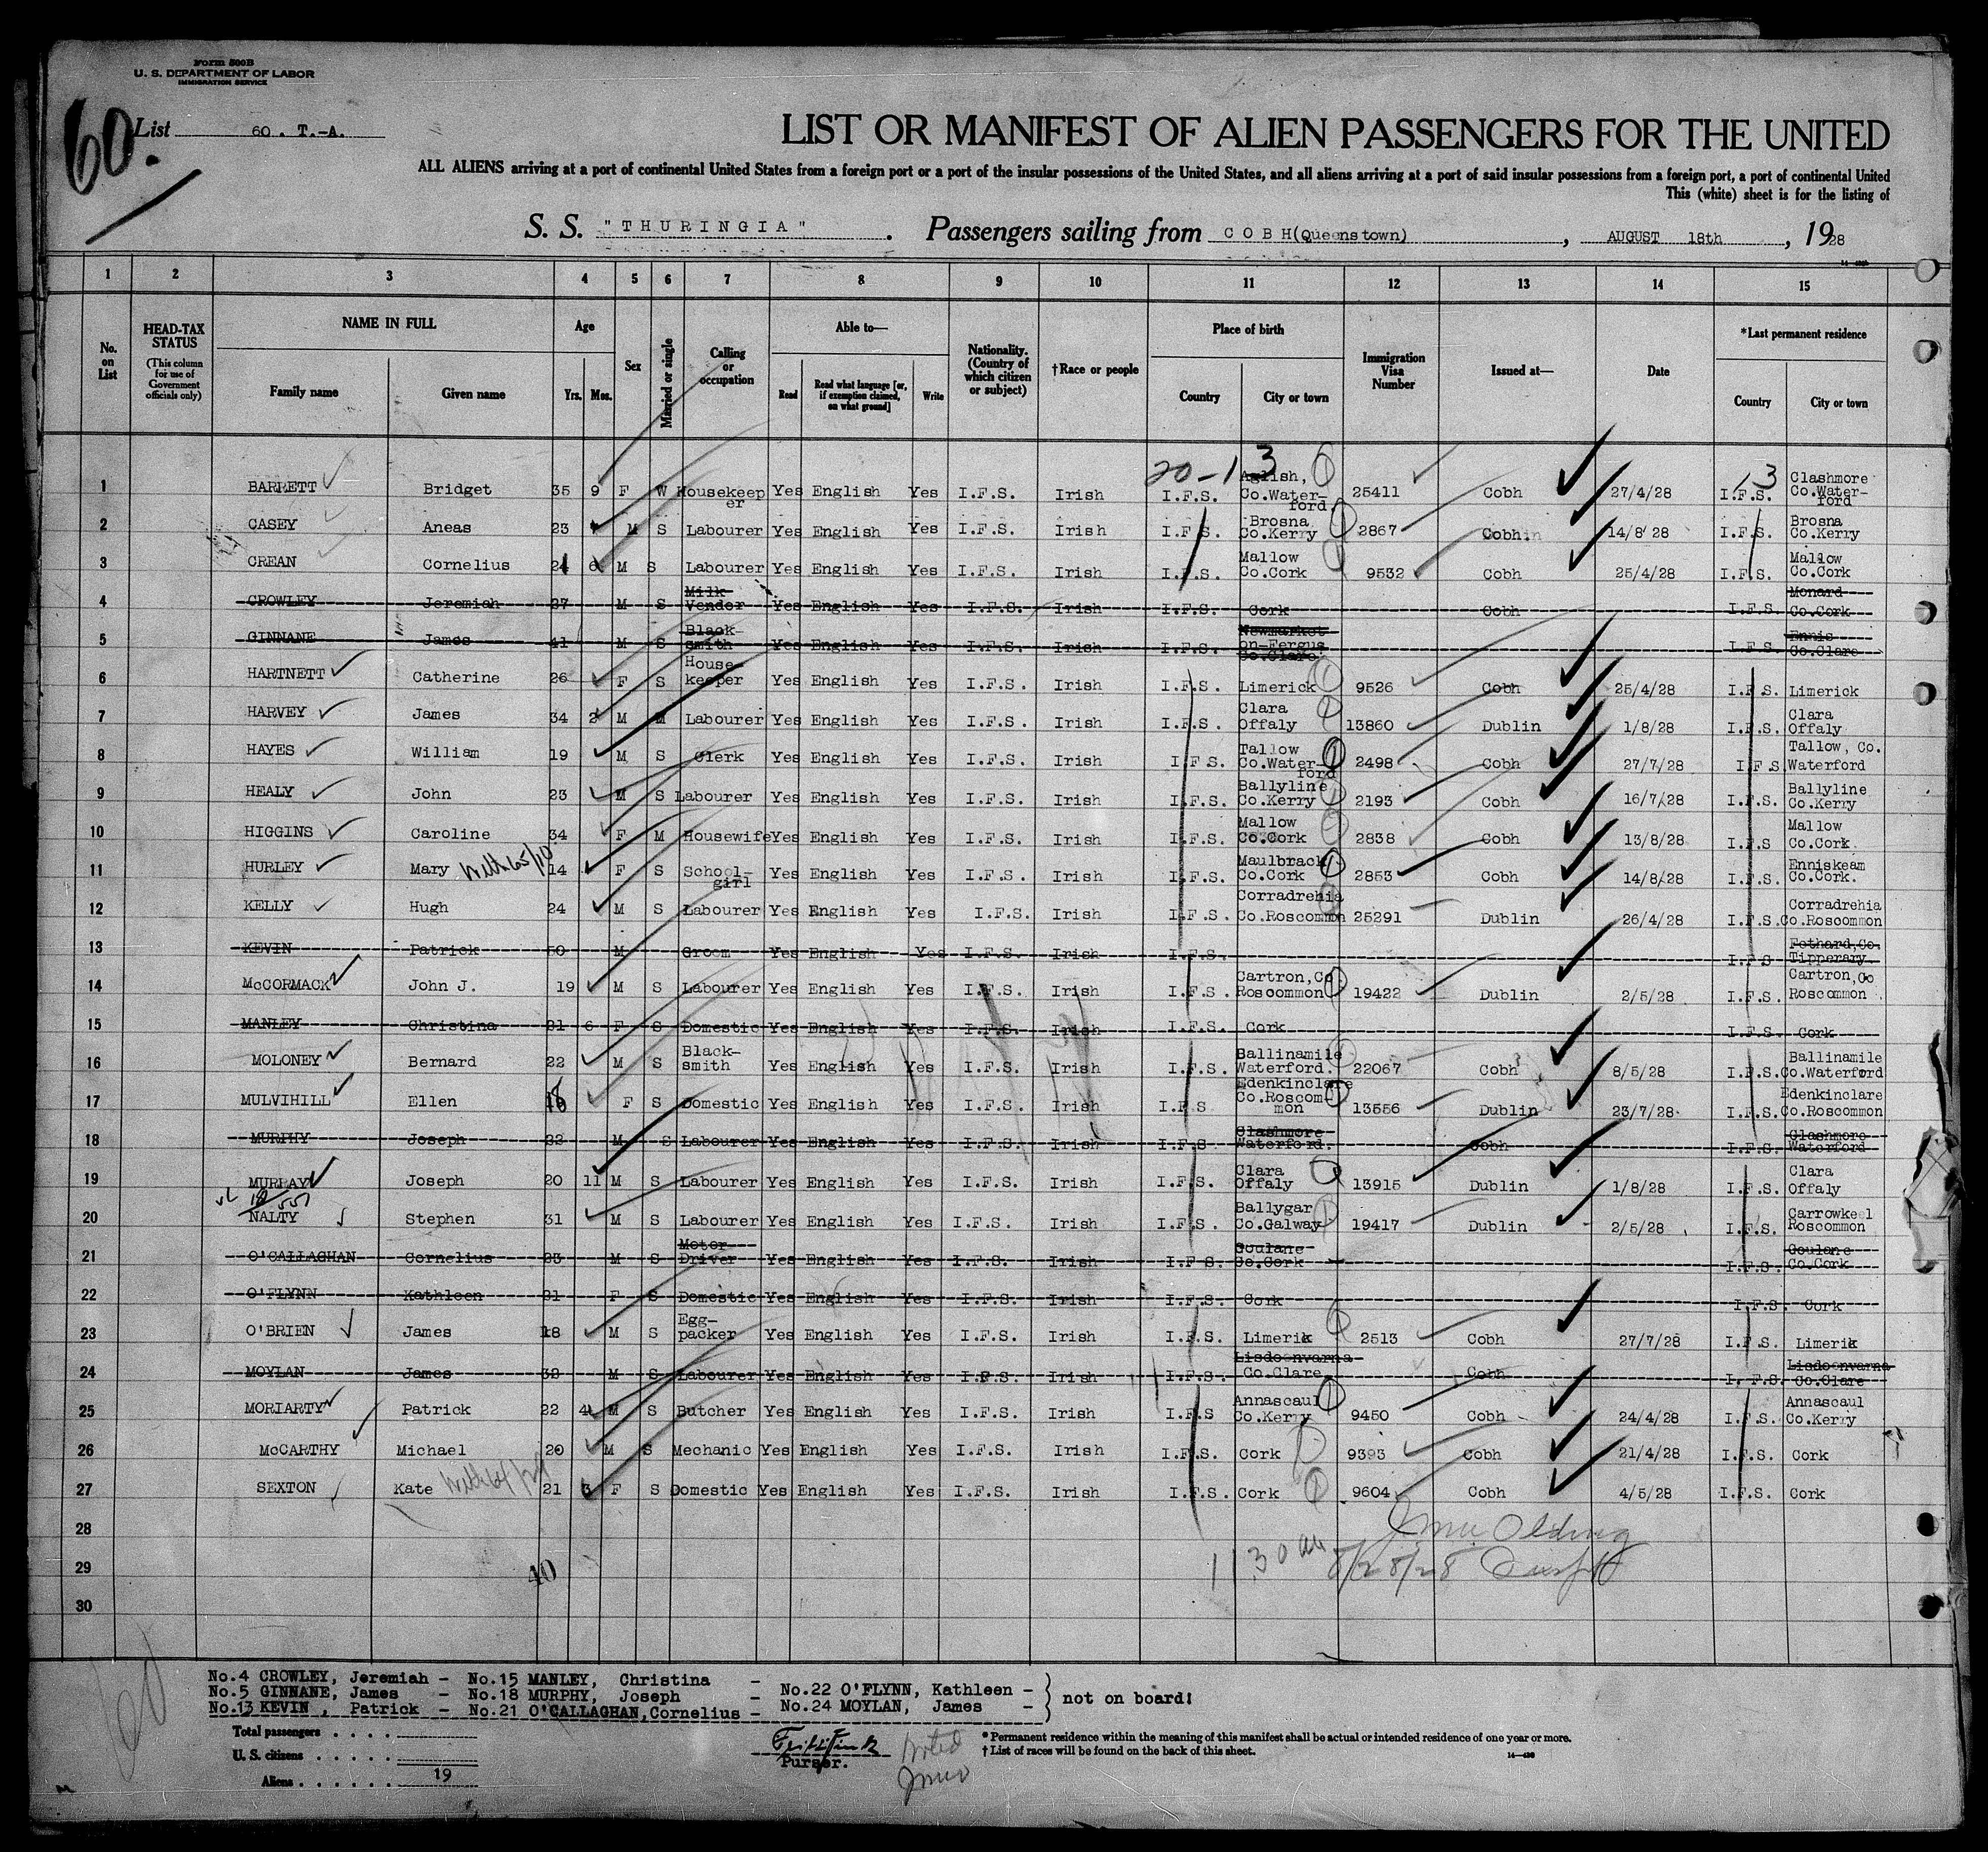 Form 500B
U. S. DEPARTMENT OF LABOR
IMMIGRATION SERVICE
60.
List 60. T.-A.
LIST OR MANIFEST OF ALIEN PASSENGERS FOR THE UNITED
ALL ALIENS arriving at a port of continental United States from a foreign port or a port of the insular possessions of the United States, and all aliens arriving at a port of said insular possessions from a foreign port, a port of continental United
This (white) sheet is for the listing of
S. S. "THURINGIA" . Passengers sailing from COBH(Queenstown) , AUGUST 18th , 1928
1 2 3 4 5 6 7 8 9 10 11 12 13 14 15
No. on List
HEAD-TAX STATUS
(This column for use of Government officials only)
NAME IN FULL
Family name Given name
Age
Yrs. Mos.
Sex
Married or single
Calling or occupation
Able to—
Read Read what language [or, if exemption claimed, on what ground] Write
Nationality. (Country of which citizen or subject)
†Race or people
Place of birth
Country City or town
Immigration Visa Number
Issued at—
Date
*Last permanent residence
Country City or town
20-1 3 13
1 BARRETT Bridget 35 9 F W Housekeeper Yes English Yes I.F.S. Irish I.F.S. Aglish, Co.Waterford. 25411 Cobh 27/4/28 I.F.S. Clashmore Co.Waterford
2 CASEY Aneas 23 M S Labourer Yes English Yes I.F.S. Irish I.F.S. Brosna Co.Kerry 2867 Cobh 14/8 28 I.F.S. Brosna Co.Kerry
3 CREAN Cornelius 24 6 M S Labourer Yes English Yes I.F.S. Irish I.F.S. Mallow Co.Cork 9532 Cobh 25/4/28 I.F.S. Mallow Co.Cork
4 CROWLEY Jeremiah 27 M S Milk Vendor Yes English Yes I.F.S. Irish I.F.S. Cork Cobh I.F.S. Monard Co.Cork
5 GINNANE James 41 M S Blacksmith Yes English Yes I.F.S. Irish I.F.S. Newmarket on-Fergus Co.Clare I.F.S. Ennis Co.Clare
6 HARTNETT Catherine 26 F S Housekeeper Yes English Yes I.F.S. Irish I.F.S. Limerick 9526 Cobh 25/4/28 I.F.S. Limerick
7 HARVEY James 34 2 M M Labourer Yes English Yes I.F.S. Irish I.F.S. Clara Offaly 13860 Dublin 1/8/28 I.F.S. Clara Offaly
8 HAYES William 19 M S Clerk Yes English Yes I.F.S. Irish I.F.S. Tallow Co.Waterford 2498 Cobh 27/7/28 I.F.S. Tallow, Co. Waterford
9 HEALY John 23 M S Labourer Yes English Yes I.F.S. Irish I.F.S. Ballyline Co.Kerry 2193 Cobh 16/7/28 I.F.S. Ballyline Co.Kerry
10 HIGGINS Caroline 34 F M Housewife Yes English Yes I.F.S. Irish I.F.S. Mallow Co.Cork 2838 Cobh 13/8/28 I.F.S Mallow Co.Cork
11 HURLEY Mary With 65/10 14 F S School-girl Yes English Yes I.F.S. Irish I.F.S. Maulbrack Co.Cork 2853 Cobh 14/8/28 I.F.S. Enniskeam Co.Cork.
12 KELLY Hugh 24 M S Labourer Yes English Yes I.F.S. Irish I.F.S. Corradrehia Co.Roscommon 25291 Dublin 26/4/28 I.F.S. Corradrehia Co.Roscommon
13 KEVIN Patrick 50 M Groom Yes English Yes I.F.S. Irish I.F.S. I.F.S Fethard,Co. Tipperary
14 McCORMACK John J. 19 M S Labourer Yes English Yes I.F.S. Irish I.F.S. Cartron,Co. Roscommon 19422 Dublin 2/5/28 I.F.S. Cartron,Co Roscommon
15 MANLEY Christina 21 6 F S Domestic Yes English Yes I.F.S. Irish I.F.S. Cork I.F.S. Cork
16 MOLONEY Bernard 22 M S Blacksmith Yes English Yes I.F.S. Irish I.F.S. Ballinamile Waterford. 22067 Cobh 8/5/28 I.F.S. Ballinamile Co.Waterford
17 MULVIHILL Ellen 18 F S Domestic Yes English Yes I.F.S. Irish I.F.S Edenkinclare Co.Roscommon 13556 Dublin 23/7/28 I.F.S. Edenkinclare Co.Roscommon
18 MURPHY Joseph 22 M S Labourer Yes English Yes I.F.S. Irish I.F.S Clashmore Waterford. Cobh I.F.S. Clashmore Waterford
19 MURRAY Joseph 20 11 M S Labourer Yes English Yes I.F.S. Irish I.F.S. Clara Offaly 13915 Dublin 1/8/28 I.F.S. Clara Offaly
20 NALTY Stephen 31 M S Labourer Yes English Yes I.F.S. Irish I.F.S. Ballygar Co.Galway 19417 Dublin 2/5/28 I.F.S. Carrowkeel Roscommon
21 O'CALLAGHAN Cornelius 23 M S Motor Driver Yes English Yes I.F.S. Irish I.F.S. Coulane Co.Cork I.F.S. Coulane Co.Cork
22 O'FLYNN Kathleen 21 F S Domestic Yes English Yes I.F.S. Irish I.F.S. Cork I.F.S. Cork
23 O'BRIEN James 18 M S Egg-packer Yes English Yes I.F.S. Irish I.F.S. Limerik 2513 Cobh 27/7/28 I.F.S. Limerik
24 MOYLAN James 32 M S Labourer Yes English Yes I.F.S. Irish I.F.S. Lisdoonvarna Co.Clare Cobh I.F.S. Lisdoonvarna Co.Clare
25 MORIARTY Patrick 22 4 M S Butcher Yes English Yes I.F.S. Irish I.F.S Annascaul Co.Kerry 9450 Cobh 24/4/28 I.F.S. Annascaul Co.Kerry
26 McCARTHY Michael 20 M S Mechanic Yes English Yes I.F.S. Irish I.F.S. Cork 9393 Cobh 21/4/28 I.F.S. Cork
27 SEXTON Kate 21 3 F S Domestic Yes English Yes I.F.S. Irish I.F.S. Cork 9604 Cobh 4/5/28 I.F.S. Cork
28
29 40 11 30 am 8/28/28
30
No.4 CROWLEY, Jeremiah - No.15 MANLEY, Christina - No.22 O'FLYNN, Kathleen -
No.5 GINNANE, James - No.18 MURPHY, Joseph - No.24 MOYLAN, James - not on board!
No.13 KEVIN , Patrick - No.21 O'CALLAGHAN,Cornelius -
Total passengers . . . .
U. S. citizens . . . . .
Aliens . . . . . . 19
Purser.
noted
* Permanent residence within the meaning of this manifest shall be actual or intended residence of one year or more.
† List of races will be found on the back of this sheet.
60